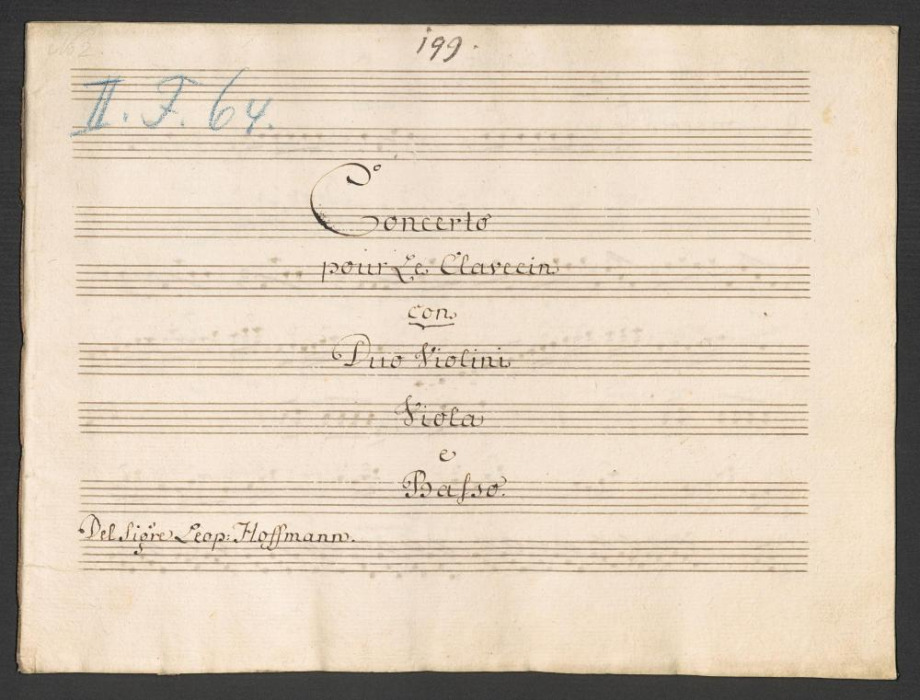 199.
II. F. 64.
Concerto
pour Le Clavecin
con
Duo Violini
Viola
e
Baſso.
Del Sigre Leop: Hoffmann.